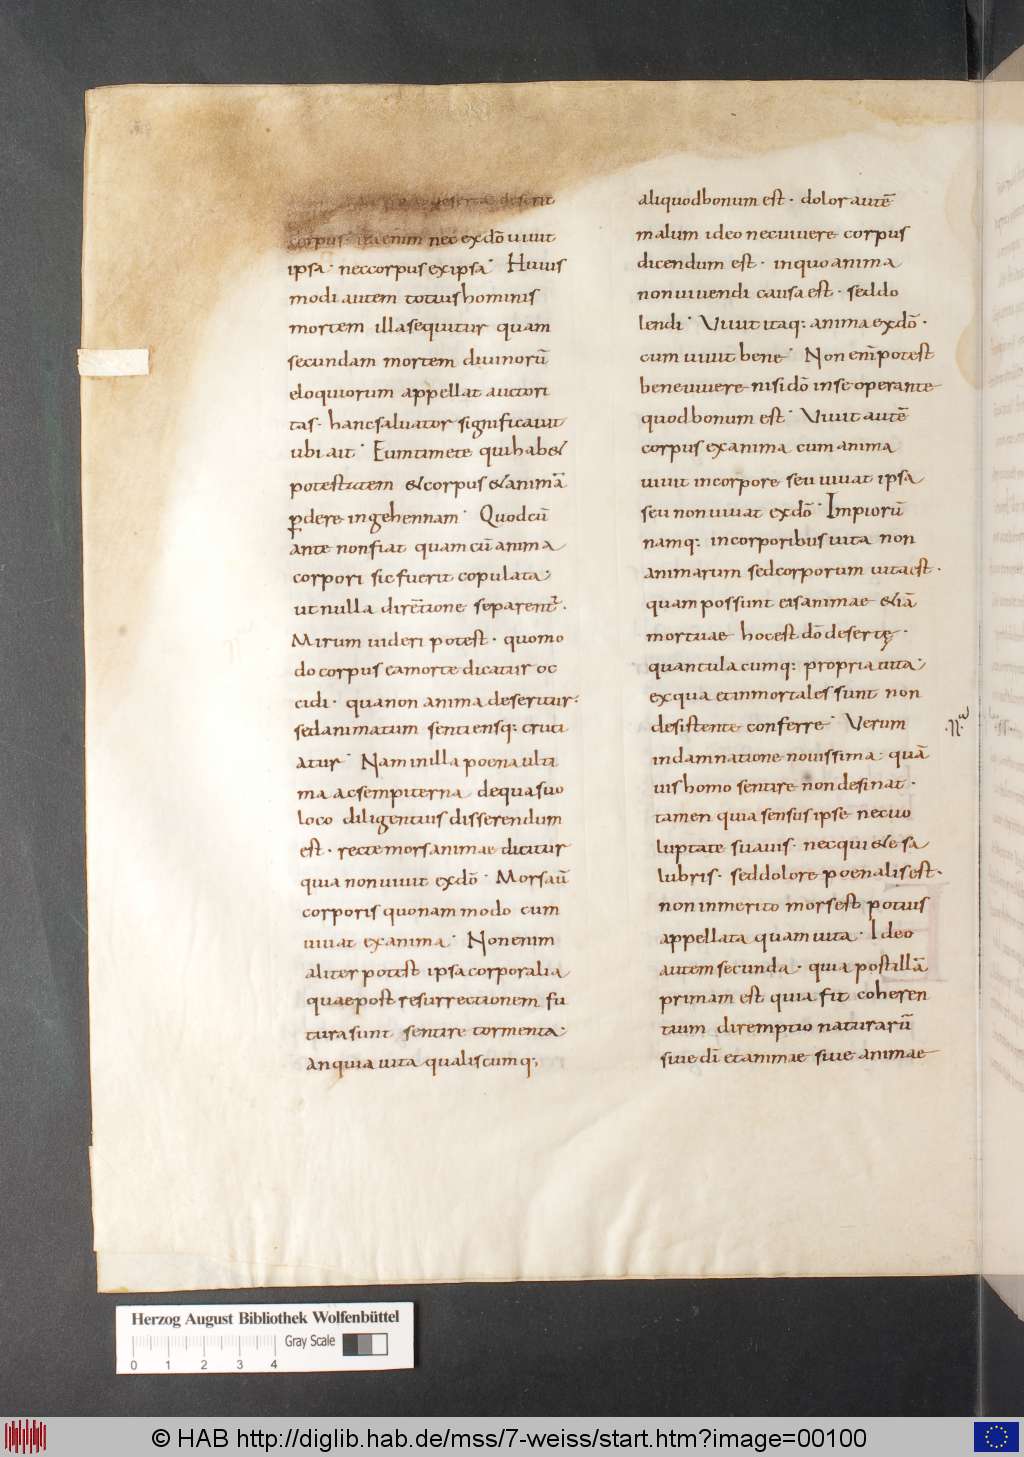 deserta deserit
corpus· ita enim nec exdō uiuit
ipsa· neccorpus exipsa· Huius
modi autem totiushominis
mortem illasequitur quam
secundam mortem diuinorū
eloquiorum appellat auctori
tas· hancsaluator significauit
ubi ait· Eumtimete quihabet
potestatem &corpus &animā
ꝑdere ingehennam· Quodcū
ante nonfiat quam cū anima
corpori sicfuerit copulata·
ut nulla diremtione separent̄·
Mirum uideri potest· quomo
do corpus eamorte dicatur oc
cidi· quanon anima deseritur·
sedanimatum sentiensq; cruci
atur· Nam inilla poenaulti
ma acsempiterna dequasuo
loco diligentius disserendum
est· recte morsanimae dicitur
quia nonuiuit exdō· Morsaū
corporis quonammodo cum
uiuat exanima· Nonenim
aliter potest ipsacorporalia
quaepostresurrectionem fu
turasunt sentire tormenta·
anquia uita qualiscumq;
aliquodbonum est· dolor autē
malum ideo necuiuere corpus
dicendum est· inquoanima
nonuiuendi causa est· seddo
lendi· Viuit itaq; anima exdō·
cum uiuit bene· Non enī potest
beneuiuere nisi dō inse operante
quod bonum est· Viuit autē
corpus exanima cum anima
uiuit incorpore seu uiuat ipsa
seu non uiuat exdō· Impiorū
namq; incorporibus uita non
animarum sedcorporum uitaest·
quam possunt eisanimae &iā
mortuae hocest dō desertę·
quantulacumq; propria uita·
exqua etinmortales sunt non
desistente conferre· Verum
indamnatione nouissima· quā
uis homo sentire non desinat·
tamen quia sensus ipse necuo
luptate suauis· necqui&e sa
lubris· seddolore poenalisest·
noninmerito morsest potius
appellata quam uita· Ideo
autemsecunda· quia postillā
primam est quia fit coheren
tium diremptio naturarū
siue dī etanimae siue animae
Herzog August Bibliothek Wolfenbüttel
Gray Scale
0 1 2 3 4
© HAB http://diglib.hab.de/mss/7-weiss/start.htm?image=00100